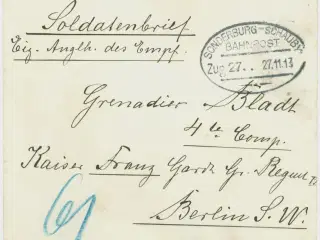 Soldatenbrief
Eig. Anglh. des Empf.
SONDERBURG-SCHAUBY
BAHNPOST
Zug 27.. 27.11.13
Grenadier Bladt
4te Comp.
Kaiser Franz Garde Gr. Regmt
Berlin S. W.